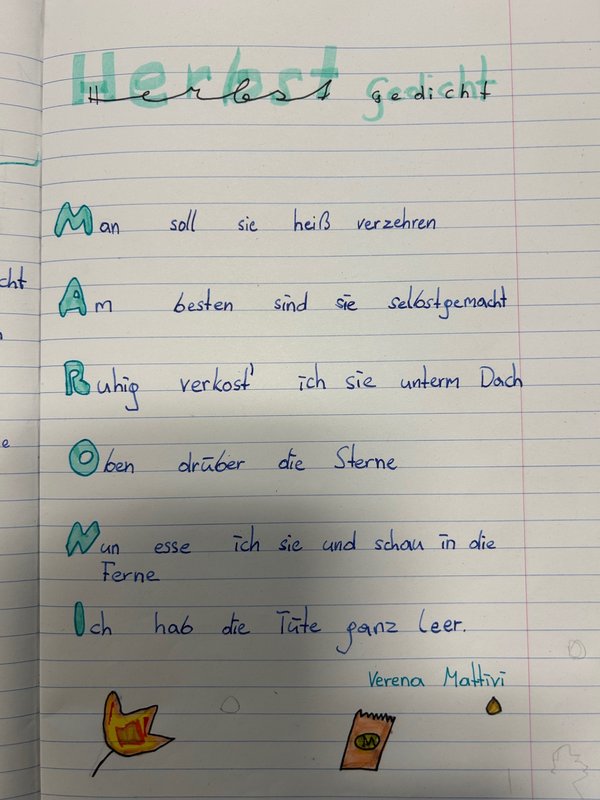 Herbst gedicht
Man soll sie heiß verzehren
Am besten sind sie selbstgemacht
Ruhig verkost' ich sie unterm Dach
Oben drüber die Sterne
Nun esse ich sie und schau in die
Ferne
Ich hab die Tüte ganz leer.
Verena Mattivi
cht
e
M